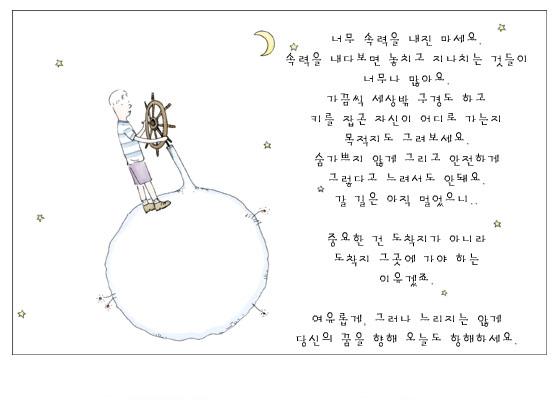 너무 속력을 내진 마세요.
속력을 내다보면 놓치고 지나치는 것들이
너무나 많아요.
가끔씩 세상밖 구경도 하고
키를 잡은 자신이 어디로 가는지
목적지도 그려보세요.
숨가쁘지 않게 그리고 안전하게
그렇다고 느려서도 안돼요.
갈 길은 아직 멀었으니..
중요한 건 도착지가 아니라
도착지 그곳에 가야 하는
이유겠죠.
여유롭게, 그러나 느리지는 않게
당신의 꿈을 향해 오늘도 항해하세요.